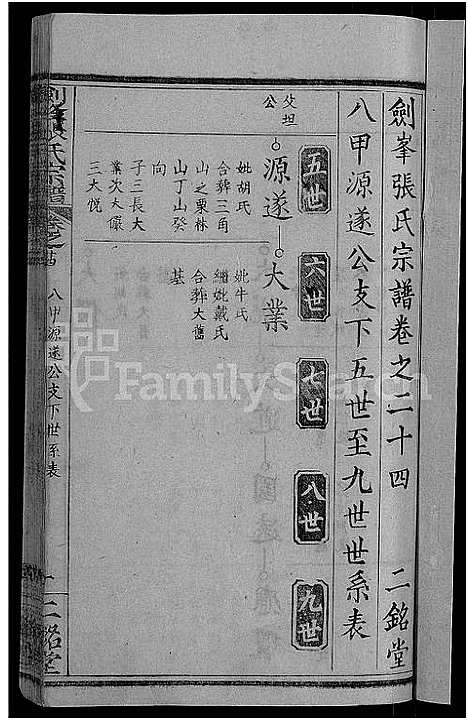 劍峯張氏宗譜卷之二十四 二銘堂
八甲源遂公支下五世至九世世系表
五世
六世
七世
八世
九世
父坦
公
源遂
大業
妣胡氏
合葬三角
山之栗林
山丁山癸
向
子三長大
業次大儼
三大悅
妣牛氏
繼妣戴氏
合葬大舊
基
氏宗譜
八甲源遂公支下世系表
二銘堂
FamilySearch